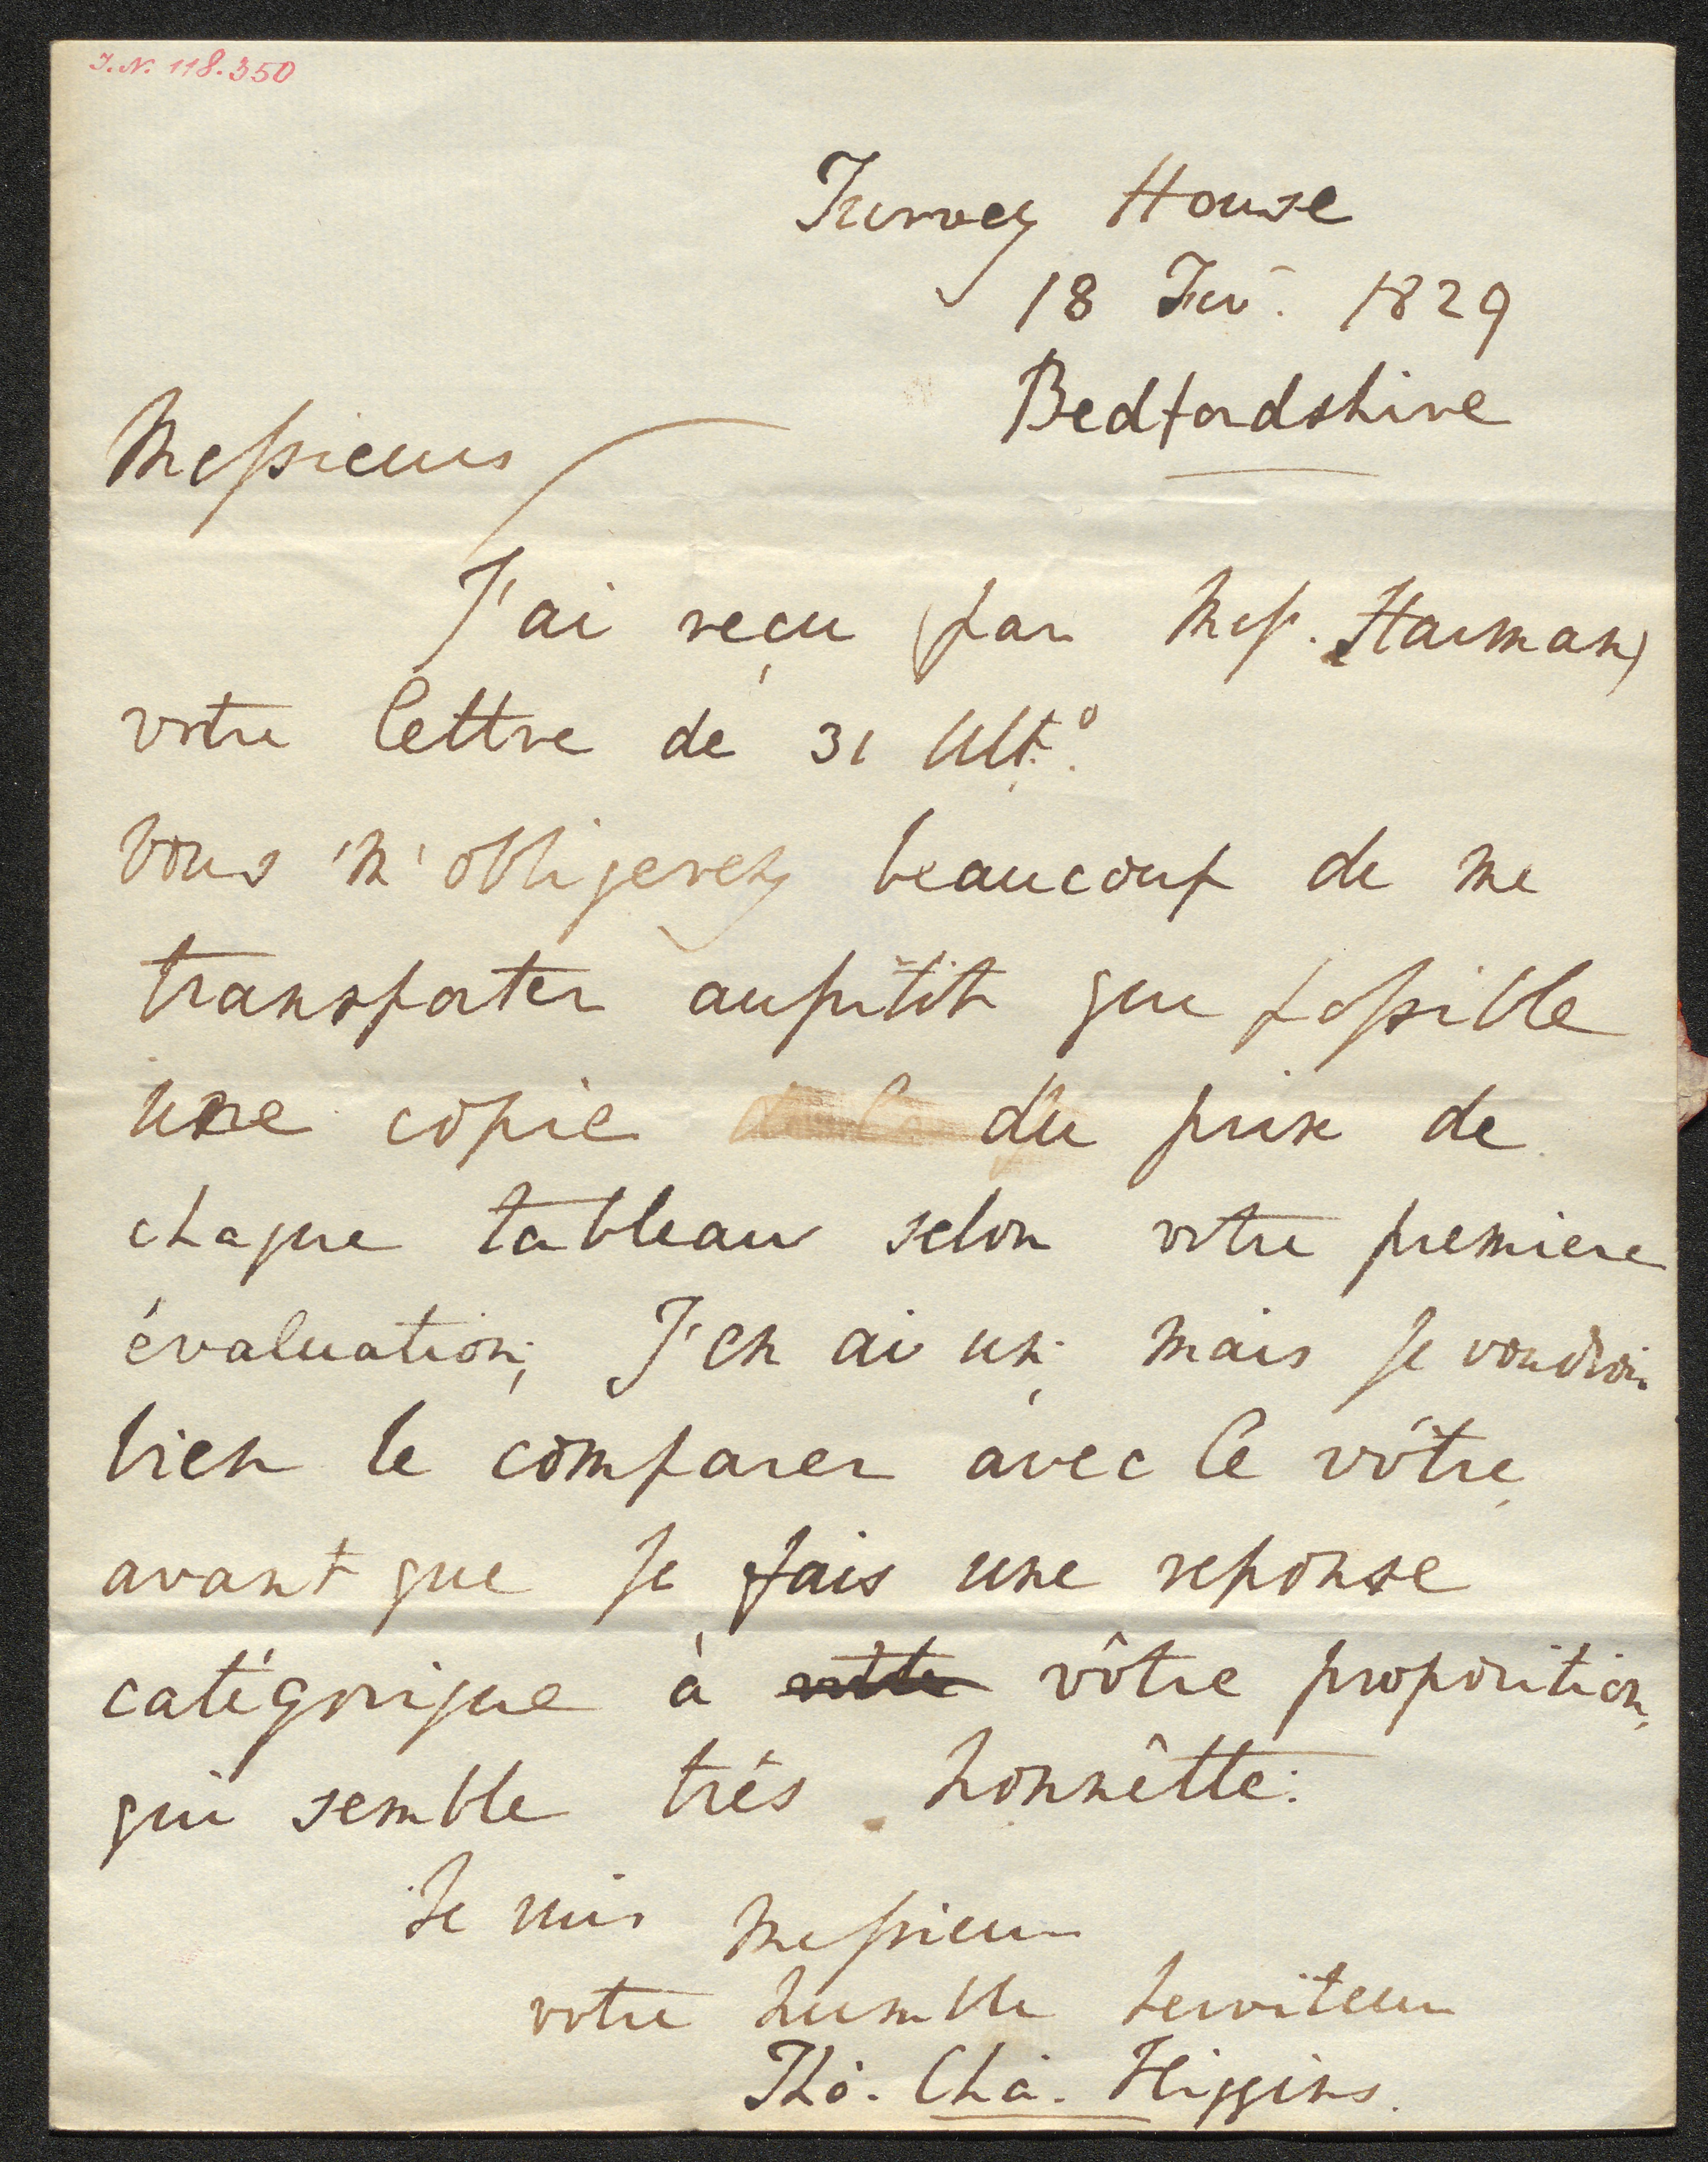 I.N. 118.350
Turvey House
18 Fev. 1829
Bedfordshire
Messieurs
J'ai reçu (par Mess. Harman)
votre lettre de 31 Ult.º
Vous m'obligerez beaucoup de me
transporter aussitôt que possible
une copie du prix de
chaque tableau selon votre premiere
évaluation; J'en ai un; mais Je voudrois
bien le comparer avec le vôtre
avant que Je fais une reponse
catégorique à vôtre proposition,
qui semble trés honnêtte.
Je suis Messieurs
votre humble Serviteur
Tho. Cha. Higgins.